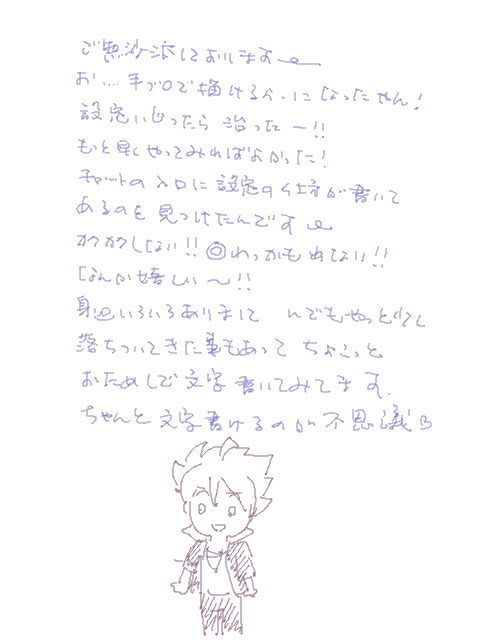 ご無沙汰しております
お…手ブロで描けるようになったやん!
設定いじったら治った〜!!
もっと早くやってみればよかった!
チャットの入口に設定の仕方が書いて
あるのを見つけたんです
カクカクしない!!◎わっかも出ない!!
なんか嬉しい〜!!
身辺いろいろありまして んでもやっと少し
落ちついてきた事もあって ちょこっと
おためしで文字書いてみてます.
ちゃんと文字書けるのが不思議